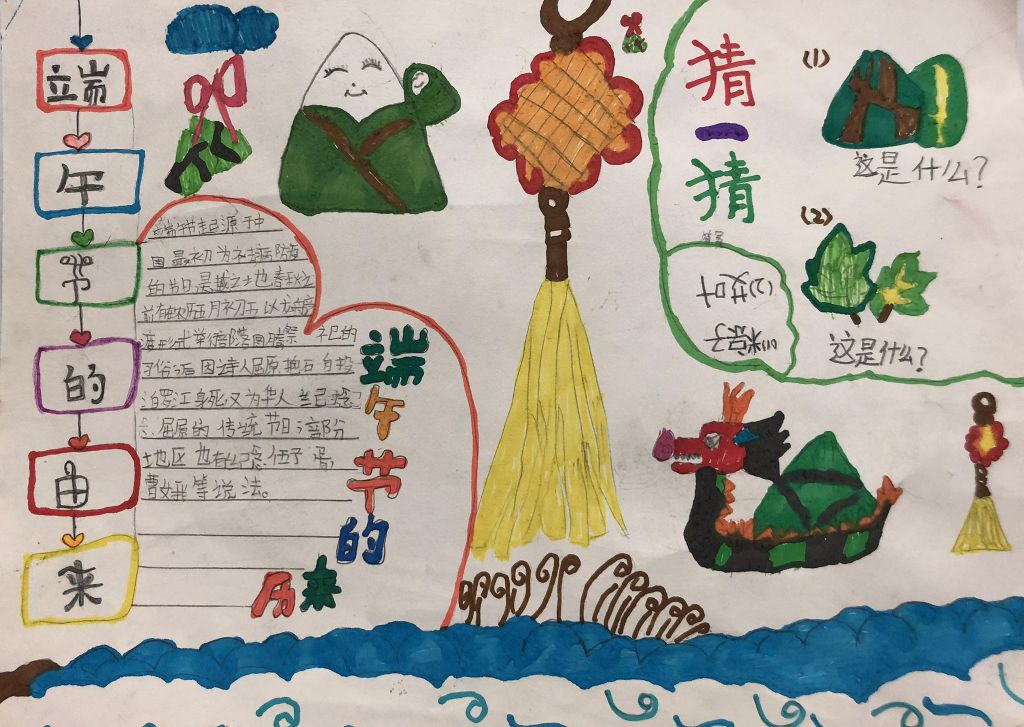 端午节的由来
端午节起源中
国最初为祛病防疫
的节日吴越之地也春秋之
前有在农历五月初五以龙舟竞
渡形式举行部落图腾祭祀的
习俗后因诗人屈原抱石自投
汨罗江身死又为华人
屈原的传统节日部分
地区也有纪念伍子胥
曹娥等说法。
端午节的
历来
猜一猜
(1)
这是什么?
(2)
这是什么?
(1)粽子
(2)艾叶